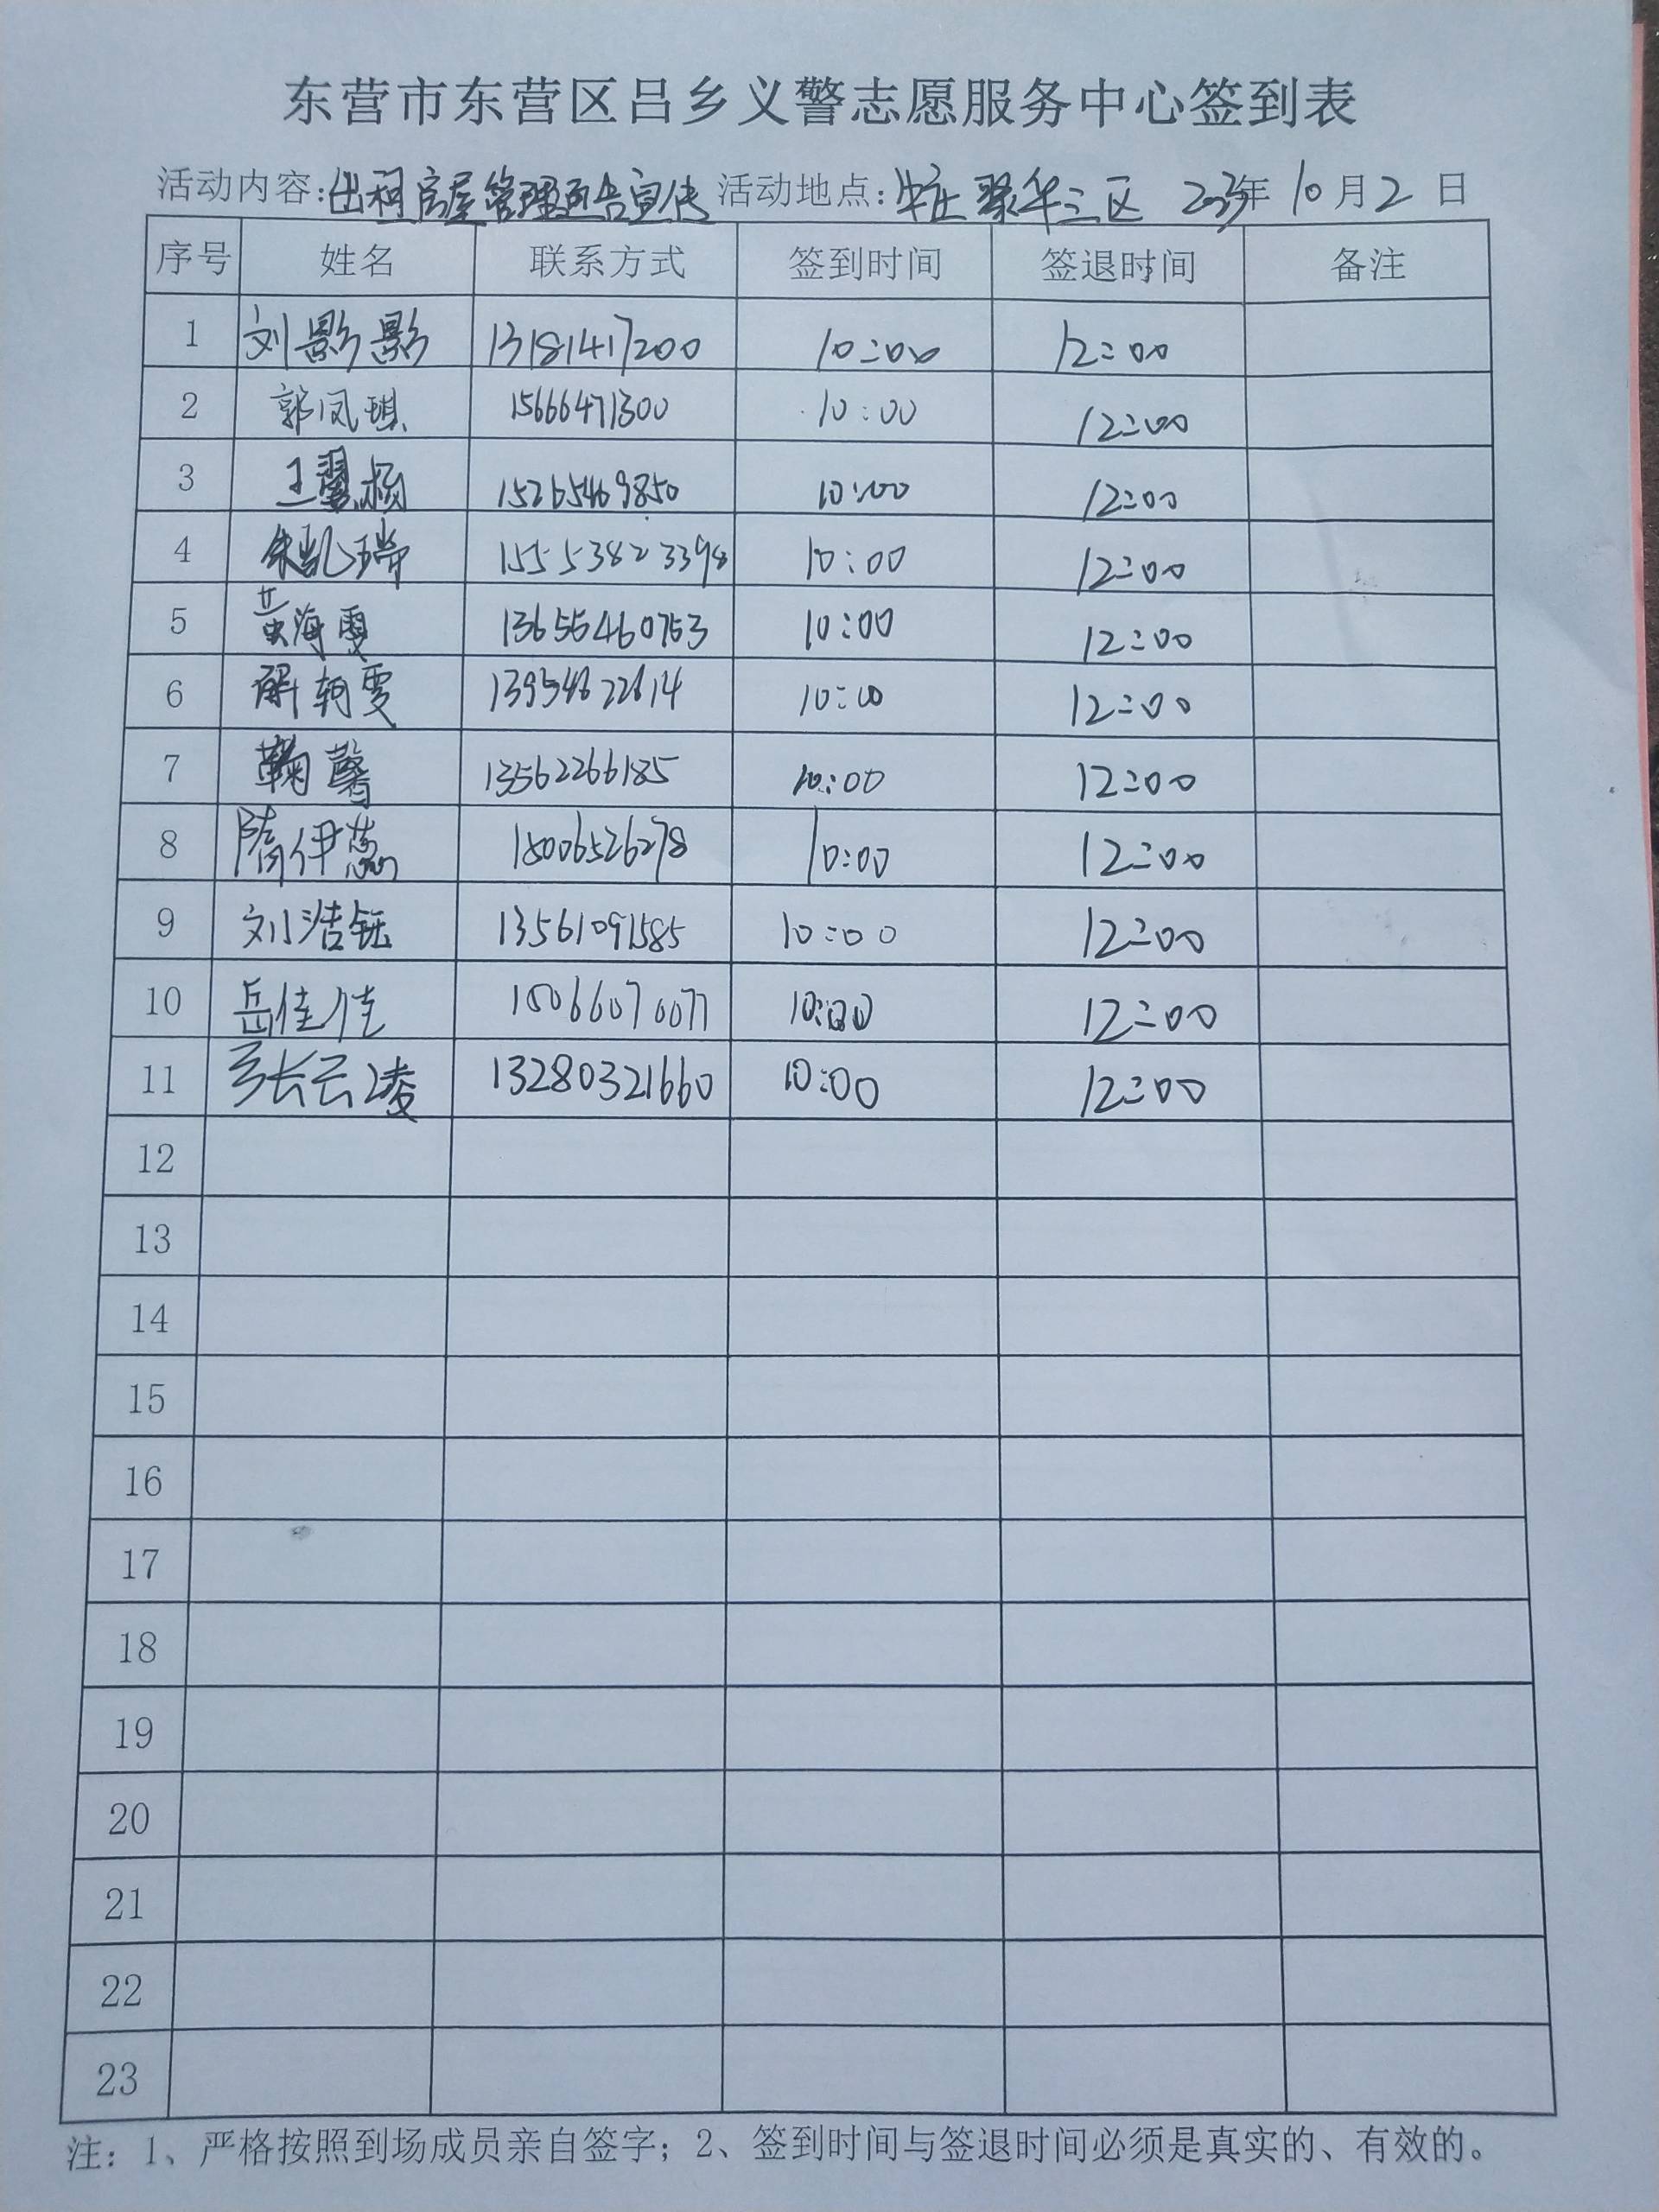 东营市东营区吕乡义警志愿服务中心签到表
活动内容:出租房屋管理通告宣传 活动地点:牛庄聚华三区 2023年10月2日
序号 姓名 联系方式 签到时间 签退时间 备注
1 刘影影 13181417200 10:00 12:00
2 郭凤琪 15666471300 10:00 12:00
3 王翼杨 15265469850 10:00 12:00
4 朱凯瑞 15553823398 10:00 12:00
5 黄海雯 13655460753 10:00 12:00
6 解轲雯 13954622614 10:00 12:00
7 鞠馨 13562266185 10:00 12:00
8 隋伊蕊 15006526278 10:00 12:00
9 刘浩钰 13561091585 10:00 12:00
10 岳佳佳 15066070077 10:00 12:00
11 张云凌 13280321660 10:00 12:00
12
13
14
15
16
17
18
19
20
21
22
23
注：1、严格按照到场成员亲自签字；2、签到时间与签退时间必须是真实的、有效的。